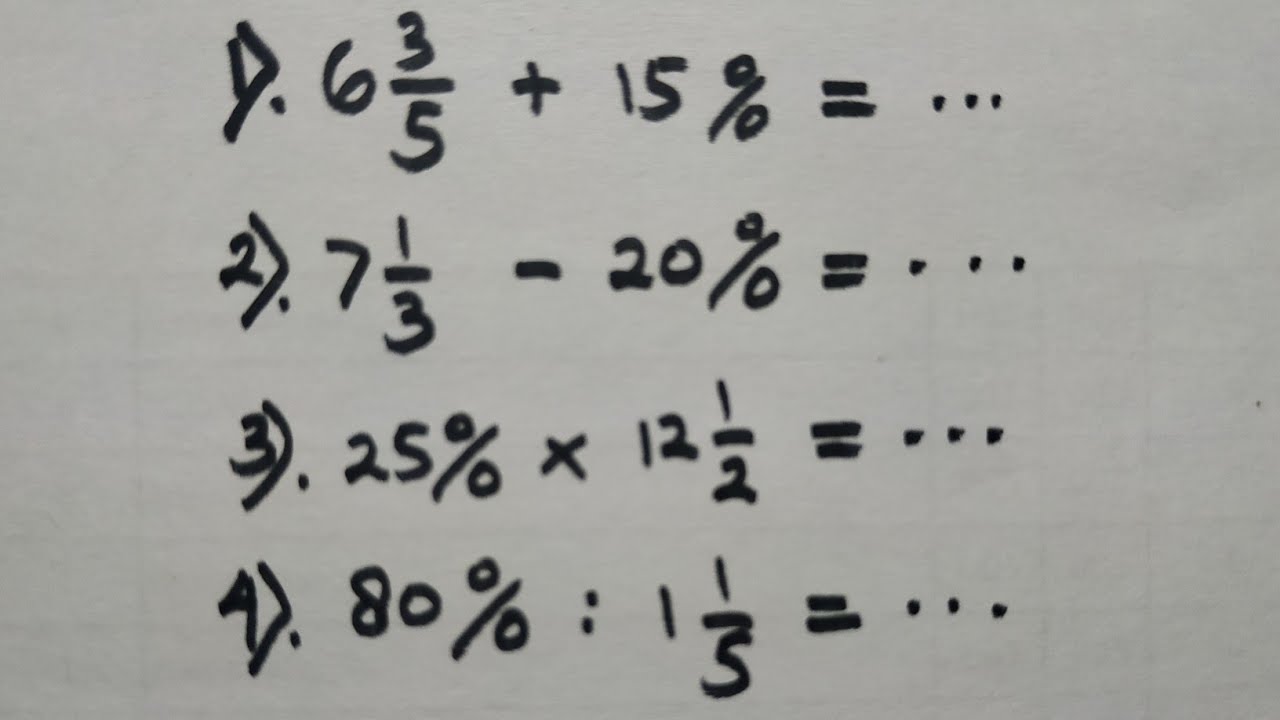 1). 6 3/5 + 15% = ...
2). 7 1/3 - 20% = ...
3). 25% × 12 1/2 = ...
4). 80% : 1 1/5 = ...